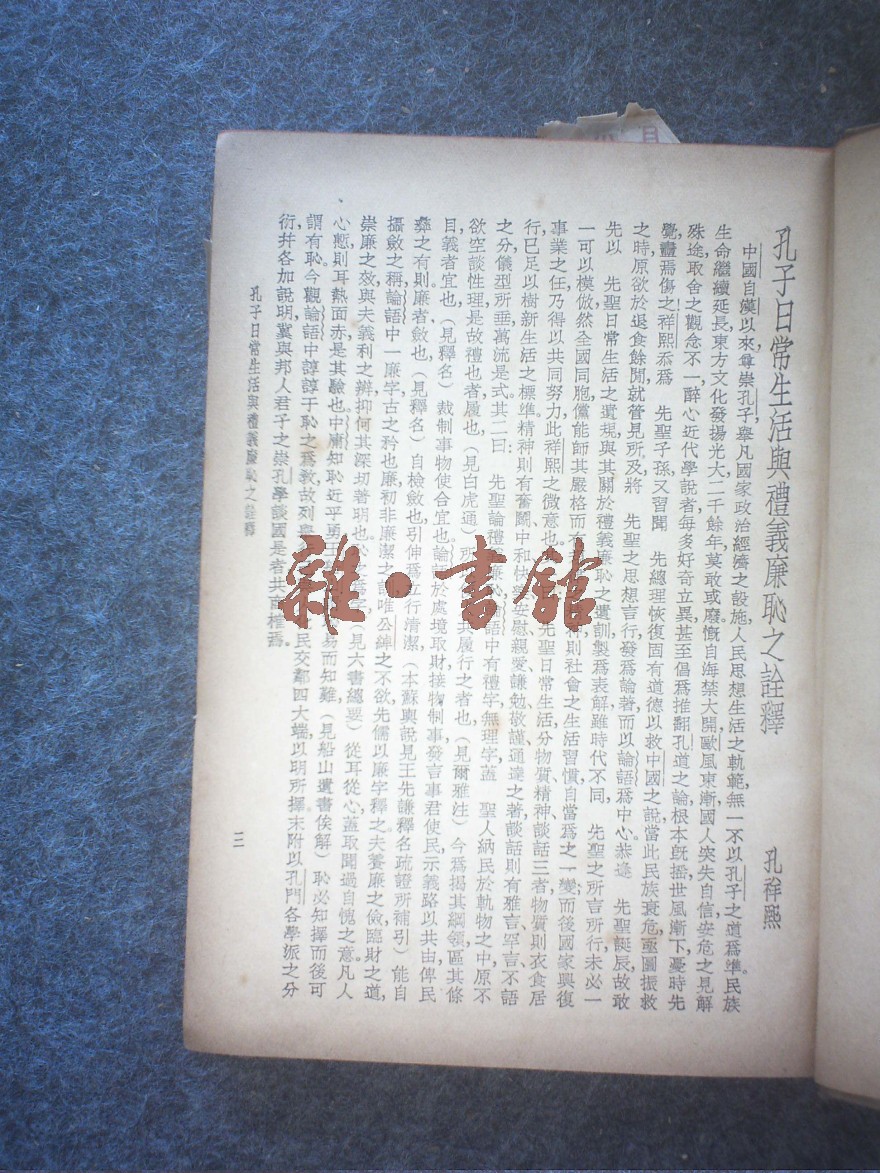 孔子日常生活與禮義廉恥之詮釋
孔祥熙
中國自漢以來尊崇孔子,舉凡國家政治經濟之設施,人民思想生活之軌範,無一不以孔子之道爲準。民族
生命繼續延長,東方文化發揚光大,二千餘年,莫敢或廢。慨自海禁大開,歐風東漸,國人突失自信,安危之見解
殊途,取舍之觀念不一,醉心近代學說者,每多好奇立異,甚至倡爲推翻孔道之論,根本旣搖,世風漸下,憂時先
覺,盡焉傷之。祥熙忝爲 先聖子孫,又習聞 先總理恢復固有道德以救中國之說,當此民族衰危,亟圖振救
之時,原欲於退食餘閒,就管見所及,將 先聖之思想言行,發爲論著,而以論語爲中心。恭逢 先聖誕辰,故敢
先以 先聖日常生活之遺規,與其關於禮義廉恥之遺訓,製爲表解,雖時代不同, 先聖之所言所行,未必一
一可以模倣,然全國同胞,儻能師其嚴格而不 則社會之生活習慣自當爲之一變,而後國家興復
事業之任,乃得以共同努力,此祥熙之微意也。 先聖日常生活,分物質精神談話三者,物質則衣食居
行,已足以樹新生活之標準,精神則有奮鬭、中和、 安、慰親愛、謙勉、敬謹、通達之著,談話則有雅言、罕言、不語
之分,儀型所垂,萬流是式。其二曰: 先聖論禮 廉恥, 語中有禮字,無理字,蓋 聖人納民於軌物之中,原不
欲空談性理,是故禮也者,履也,(見白虎通)所 其履行之者也,(見爾雅注)今爲揭其綱領,區其條
目。義者宜也,(見釋名)裁制事物使合宜也。論 於處境取財接物制事發言事君使民,示義路以共由,俾民
彝之有則。廉者斂也,(見釋名)自檢斂也,引伸爲立行清潔,(本蘇輿說見王先謙釋名疏證所補引)能自
攝斂之稱,論語中一廉字,古之矜也廉,初非廉潔之 唯公綽之不欲,先儒以廉字釋之。夫養廉之儉,臨財之道,
崇廉之效,與夫義利之辯,抑何其深切著明也。 (見六書總要)從耳從心,蓋取聞過自愧之意。凡人
心慙則耳熱面赤,是其驗也。中庸知恥近乎勇,王 易而知難(見船山遺書俟解)恥必知擇而後可
謂有恥。今觀論語中諄諄于恥之爲敎,故列舉 民交鄰四大端,以明所擇。末附以孔門各學派之分
衍,幷各加說明,冀與邦人君子之崇孔學談國是者,共 榷焉。
孔子日常生活與禮義廉恥之詮釋
三
雜·書館